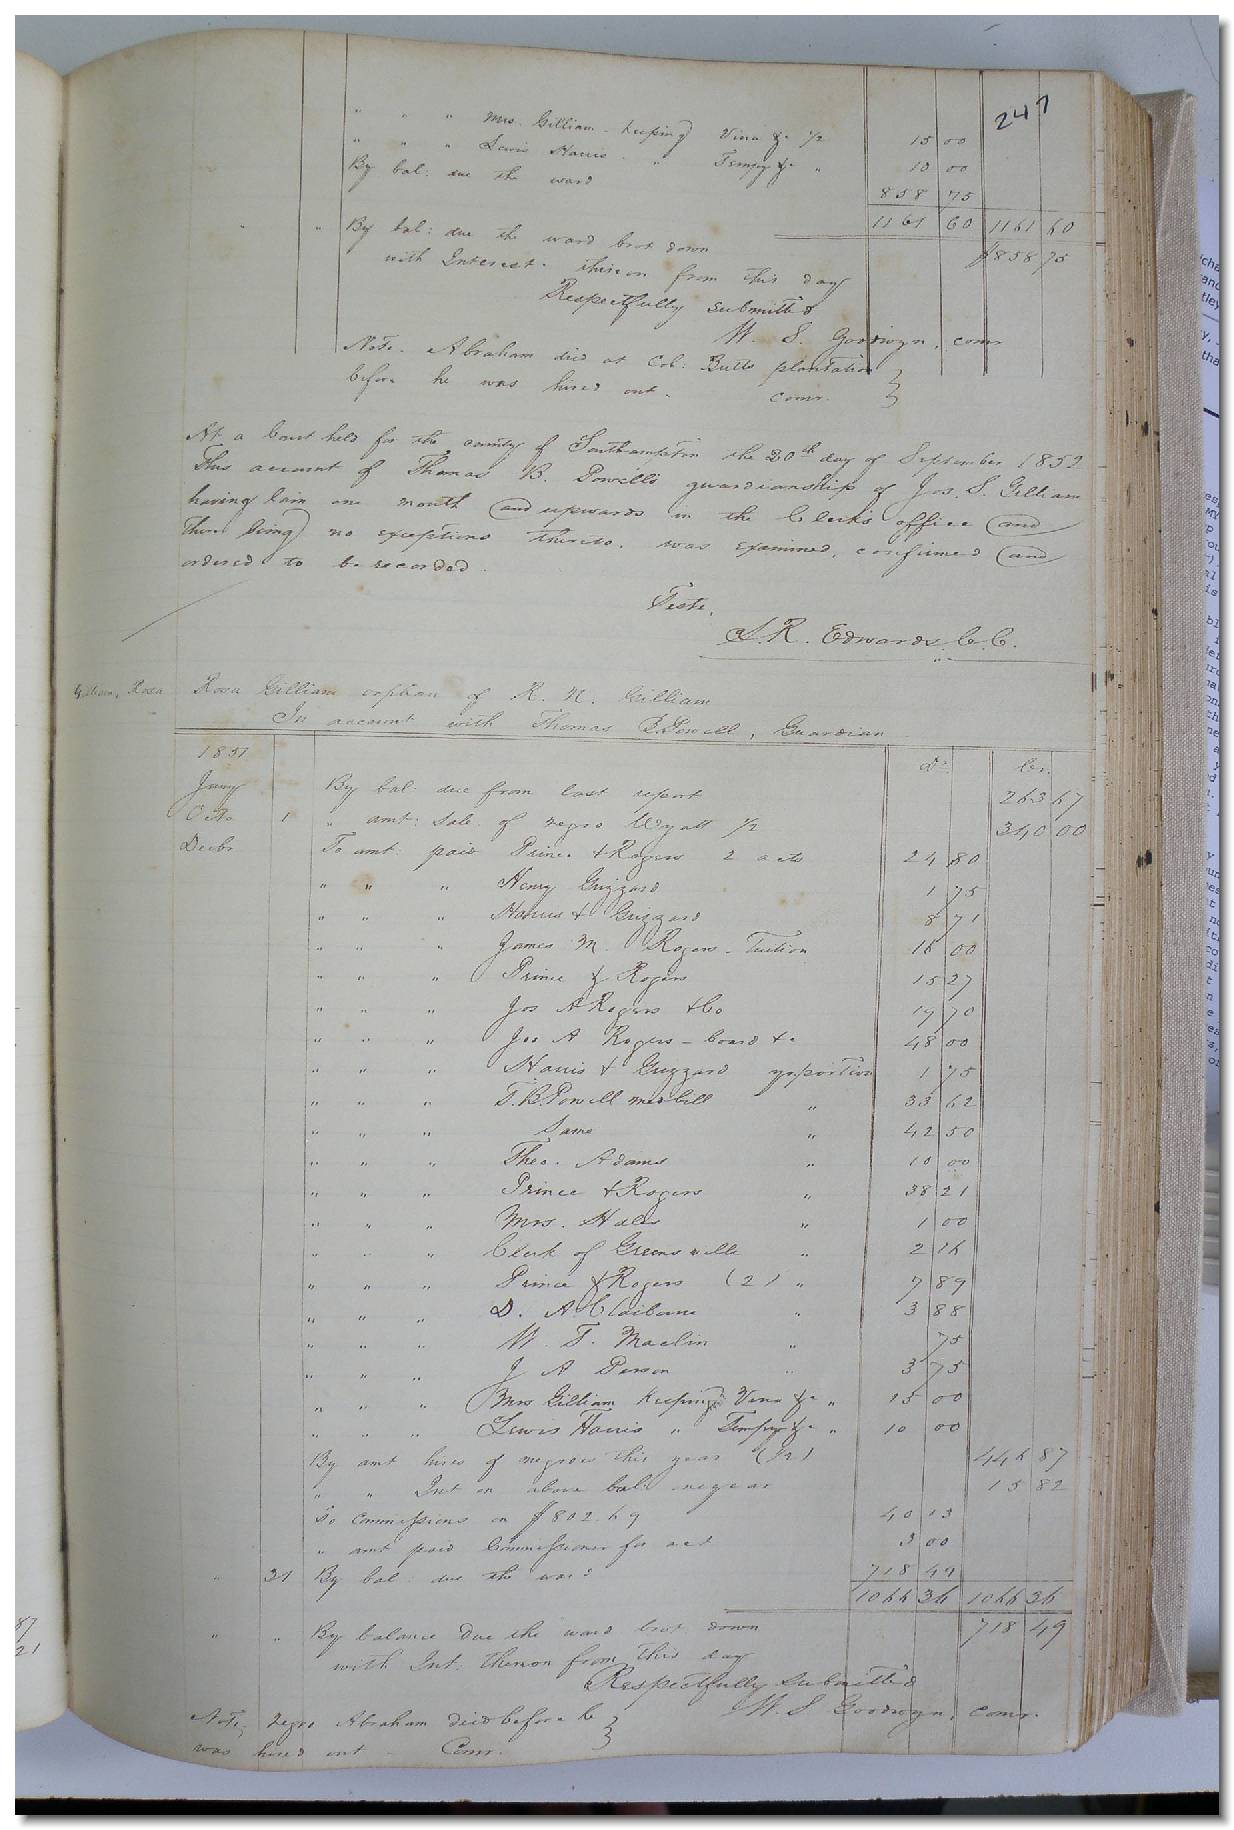 247
" " " Mrs. Gilliam - keeping Vina &c 1/2 15 00
" " " Lewis Harris - " Tempy &c " 10 00
By bal: due the ward 858 75
1161 60 1161 60
" " By bal: due the ward brot down $858 75
with Interest thereon from this day
Respectfully submitted
W. S. Goodwyn, comr
Note. Abraham died at Col: Butts plantation
before he was hired out. comr.
At a Court held for the county of Southampton the 20th day of September 1852
This account of Thomas B. Powell's guardianship of Jos. S. Gilliam
having lain one month and upwards in the Clerk's office and
there being no exceptions thereto, was examined, confirmed and
ordered to be recorded.
Teste,
L. R. Edwards, C. C.
Gilliam, Rosa
Rosa Gilliam orphan of R. N. Gilliam
In account with Thomas B. Powell, Guardian
1851 Dr Cr.
Jany By bal: due from last report 263 67
Octo 1 " amt: sale of negro Wyatt 1/2 340 00
Decbr To amt: paid Prince & Rogers 2 acts 24 80
" " " Henry Grizzard 1 75
" " " Harris & Grizzard 8 71
" " " James M. Rogers - Tuition 16 00
" " " Prince & Rogers 15 27
" " " Jos A Rogers & Co 19 70
" " " Jos A Rogers - board &c 48 00
" " " Harris & Grizzard proportion 1 75
" " " T. B. Powell med bill " 33 62
" " " Same " 42 50
" " " Theo. Adams " 10 00
" " " Prince & Rogers " 38 21
" " " Mrs. Hales " 1 00
" " " Clerk of Greensville " 2 16
" " " Prince & Rogers (2) " 7 89
" " " D. A. Claiborne " 3 88
" " " W. T. Maclin " 75
" " " J A Person " 3 75
" " " Mrs Gilliam keeping Vina &c " 15 00
" " " Lewis Harris " Tempy &c " 10 00
By amt hires of negroes this year (1/2) 446 87
" " Int on above bal: one year 15 82
To commissions on $802.69 40 13
" amt paid Commissioner for act 3 00
" 31 By bal: due the ward 718 49
1066 36 1066 36
" " By balance due the ward brot down 718 49
with Int. thereon from this day
Respectfully submitted
W. S Goodwyn, comr.
Note, negro Abraham died before he
was hired out - Comr.